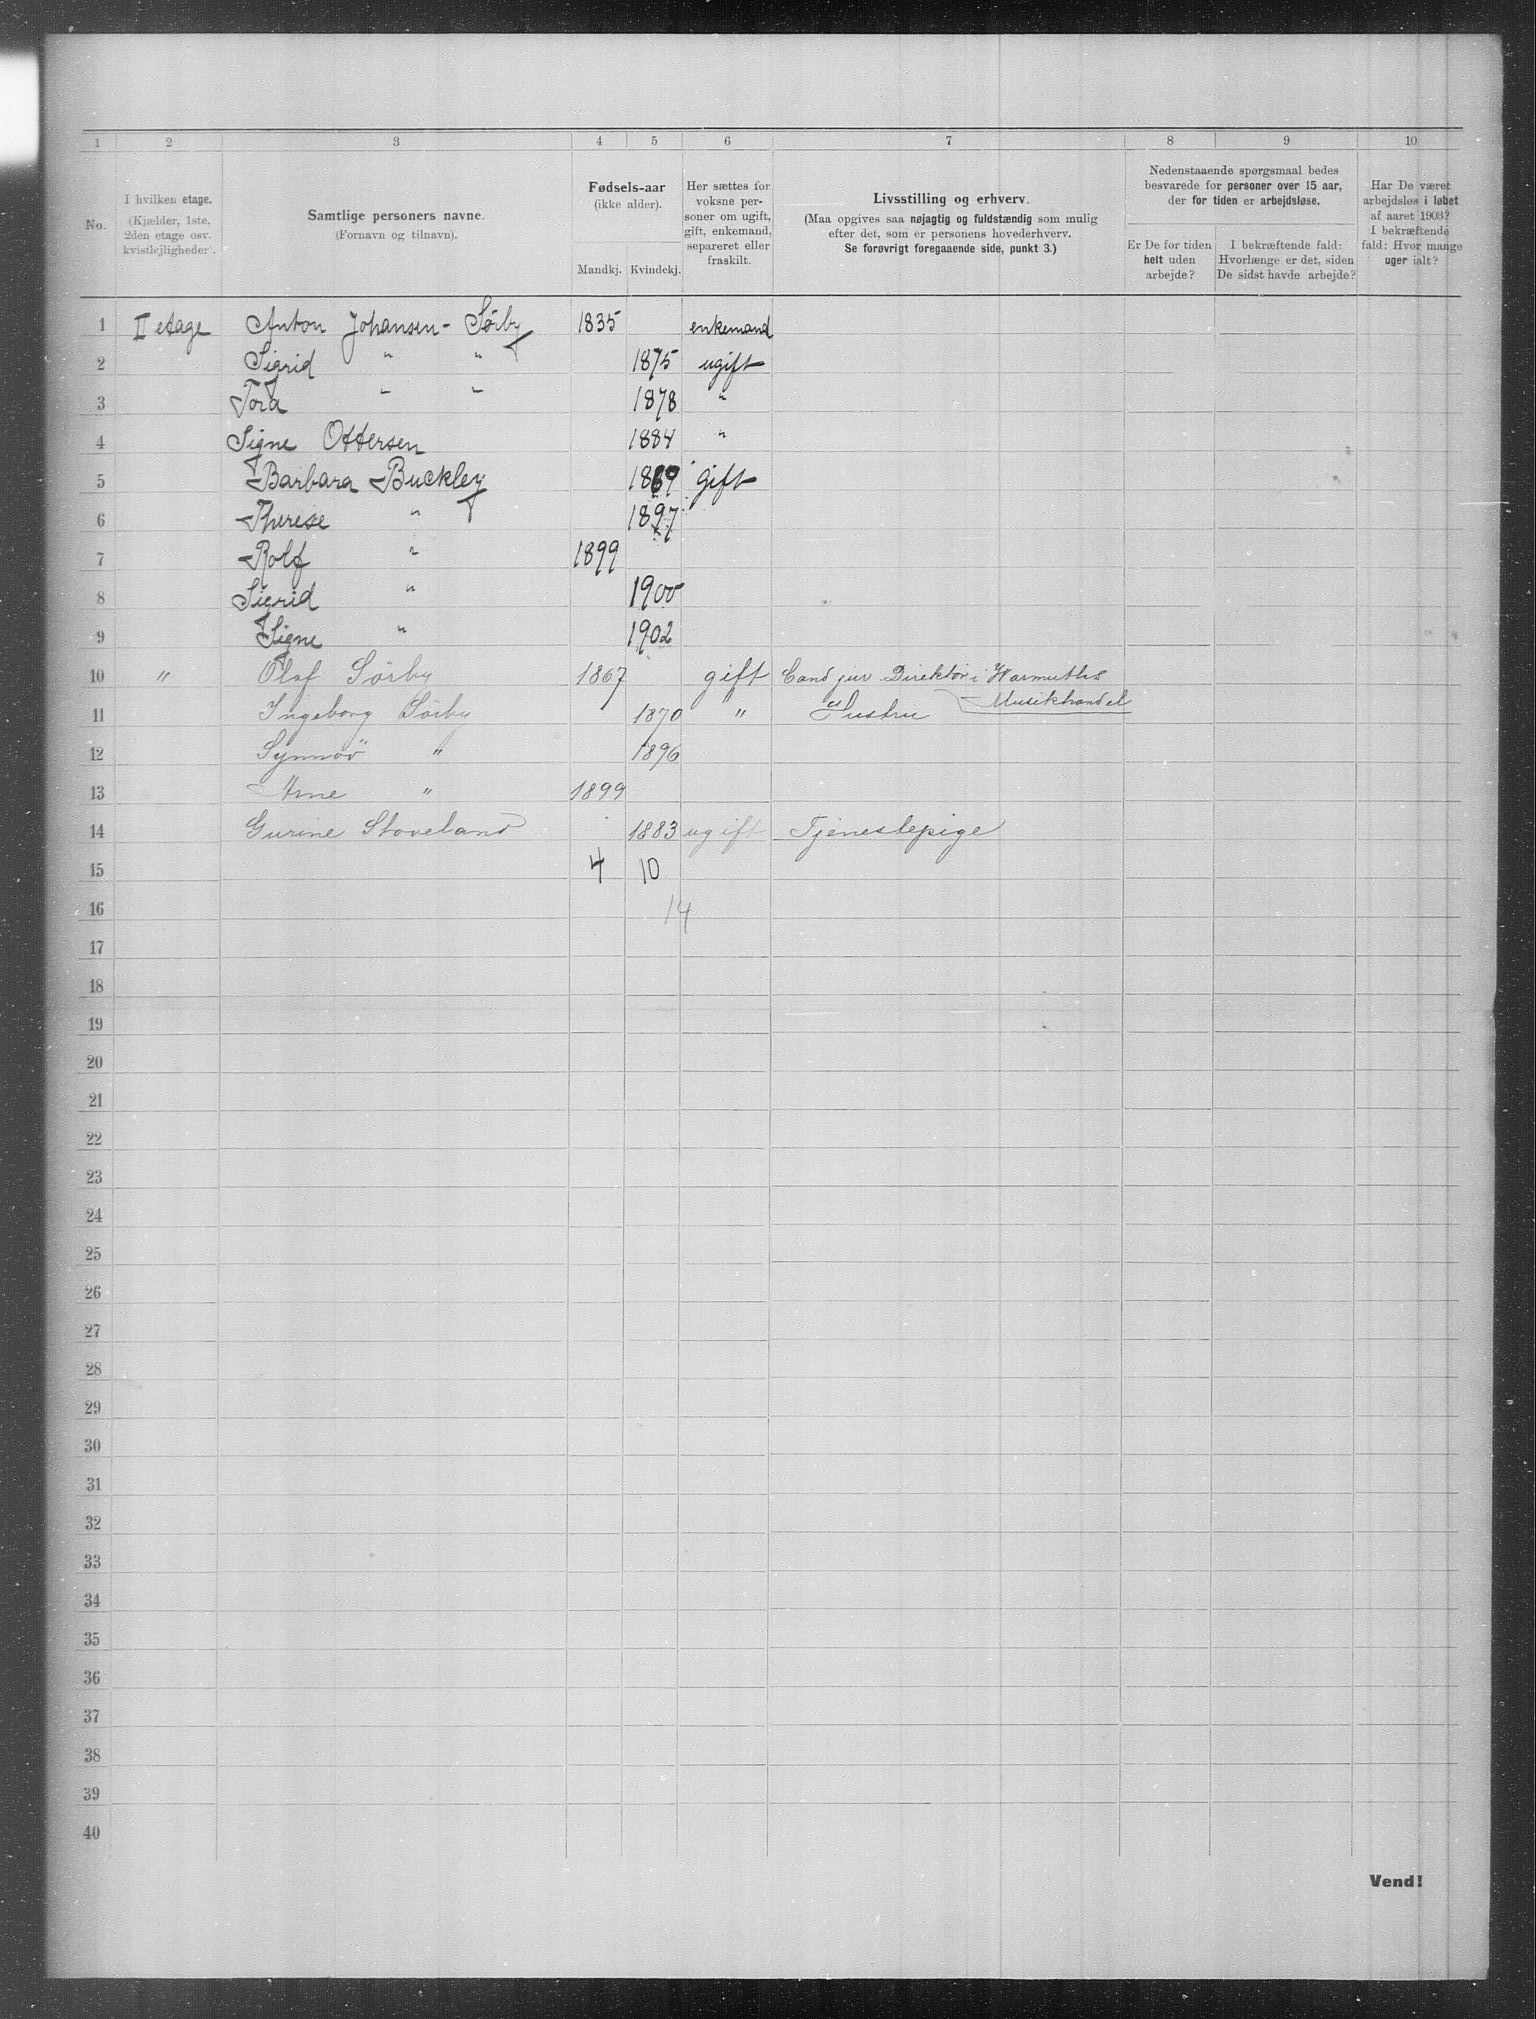 1 2 3 4 5 6 7 8 9 10
No.
I hvilken etage.
(Kjælder, 1ste.
2den etage osv.
kvistlejligheder).
Samtlige personers navne.
(Fornavn og tilnavn).
Fødsels-aar
(ikke alder).
Mandkj. Kvindekj.
Her sættes for
voksne per-
soner om ugift,
gift, enkemand,
separeret eller
fraskilt.
Livsstilling og erhverv.
(Maa opgives saa nøjagtig og fuldstændig som mulig
efter det, som er personens hovederhverv.
Se forøvrigt foregaaende side, punkt 3.)
Nedenstaaende spørgsmaal bedes
besvarede for personer over 15 aar,
der for tiden er arbejdsløse.
Er De for tiden
helt uden
arbejde?
I bekræftende fald:
Hvorlænge er det, siden
De sidst havde arbejde?
Har De været
arbejdsløs i løbet
af aaret 1903?
I bekræftende
fald: Hvor mange
uger ialt?
1 II etage Anton Johansen-Sørby 1835 enkemand
2 Sigrid " " 1875 ugift
3 Tora " " 1878 "
4 Signe Ottersen 1884 "
5 Barbara Buckley 1869 gift
6 Therese " 1897
7 Rolf " 1899
8 Sigrid " 1900
9 Signe " 1902
10 " Olaf Sørby 1867 gift Cand jur Direktør i Warmuths
Musikhandel
11 Ingeborg Sørby 1870 " Hustru
12 Synnøv " 1896
13 Arne " 1899
14 Gurine Stoveland 1883 ugift Tjenestepige
15 4 10
16 14
17
18
19
20
21
22
23
24
25
26
27
28
29
30
31
32
33
34
35
36
37
38
39
40
Vend!